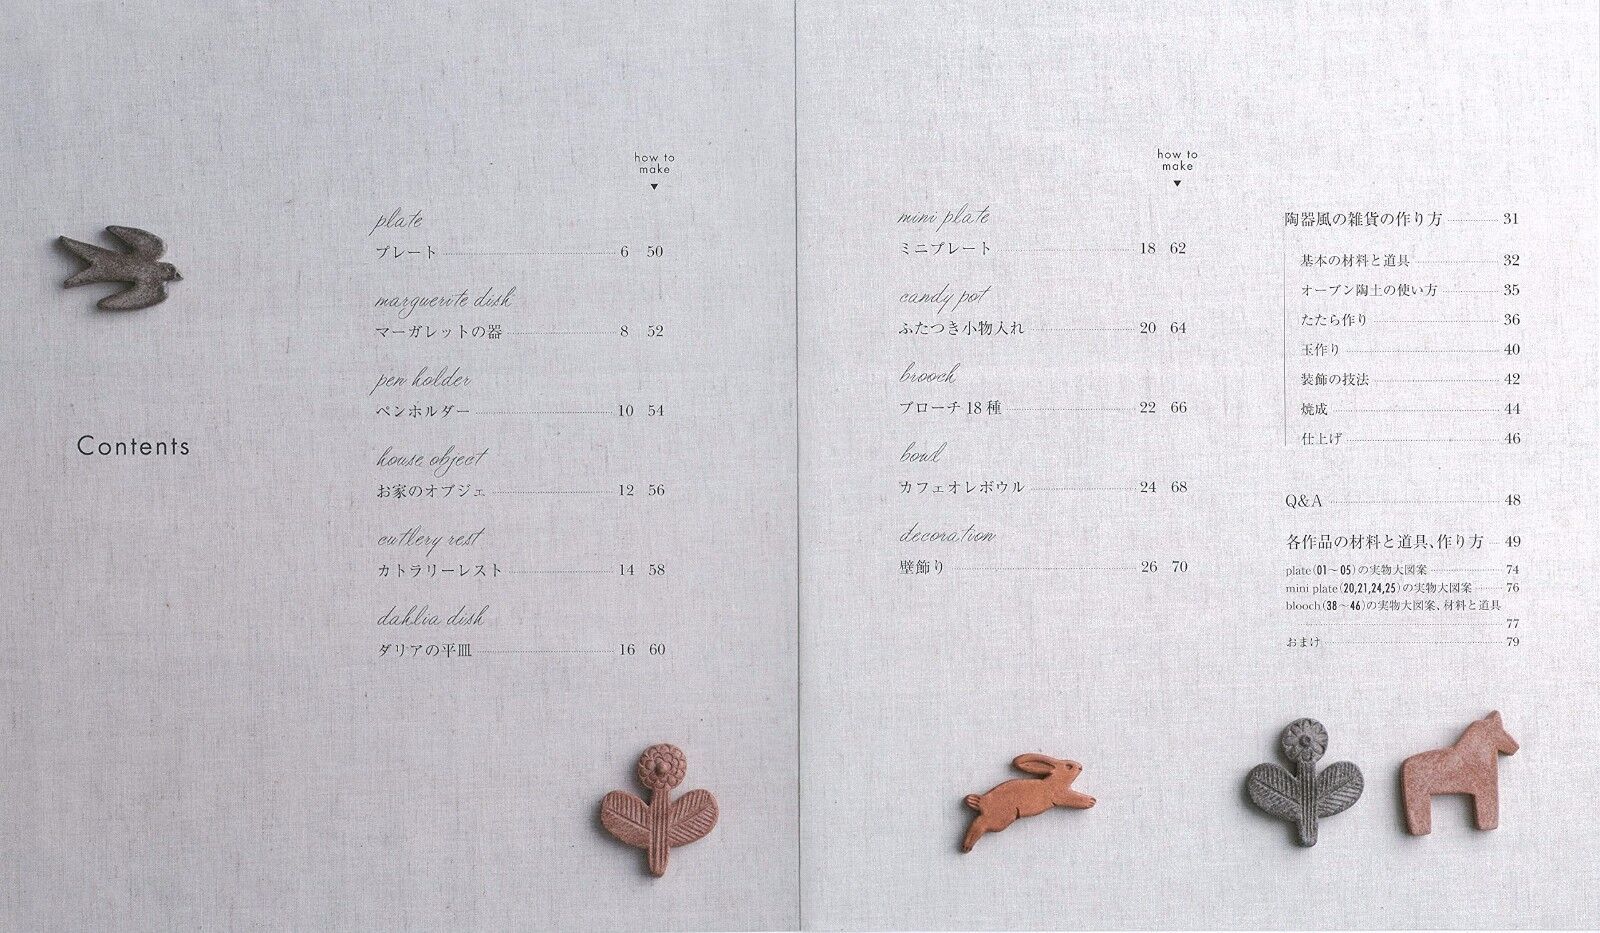 Contents
how to
make
▼
plate
プレート 6 50
marguerite dish
マーガレットの器 8 52
pen holder
ペンホルダー 10 54
house object
お家のオブジェ 12 56
cutlery rest
カトラリーレスト 14 58
dahlia dish
ダリアの平皿 16 60
how to
make
▼
mini plate
ミニプレート 18 62
candy pot
ふたつき小物入れ 20 64
brooch
ブローチ 18 種 22 66
bowl
カフェオレボウル 24 68
decoration
壁飾り 26 70
陶器風の雑貨の作り方 31
基本の材料と道具 32
オーブン陶土の使い方 35
たたら作り 36
玉作り 40
装飾の技法 42
焼成 44
仕上げ 46
Q&A 48
各作品の材料と道具、作り方 49
plate(01〜05)の実物大図案 74
mini plate(20,21,24,25)の実物大図案 76
blooch(38〜46)の実物大図案、材料と道具
77
おまけ 79